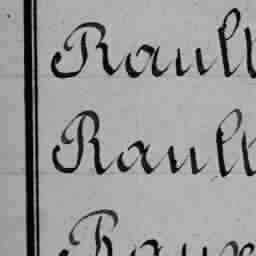 Rault
Rault